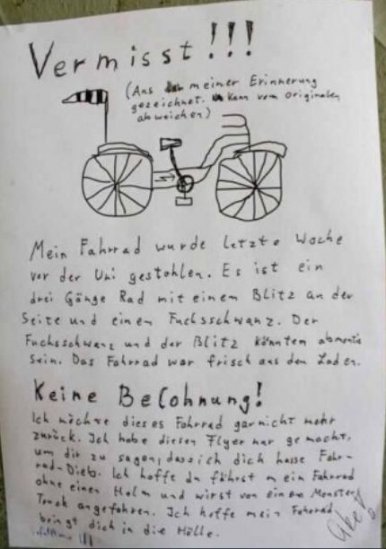 Vermisst!!!
(Aus meiner Erinnerung
gezeichnet. Kann vom originalen
abweichen)
Mein Fahrrad wurde letzte Woche
vor der Uni gestohlen. Es ist ein
drei Gänge Rad mit einem Blitz an der
Seite und einen Fuchsschwanz. Der
Fuchsschwanz und der Blitz könnten
sein. Das Fahrrad war frisch aus den Laden.
Keine Belohnung!
Ich möchte dieses Fahrrad garnicht mehr
zurück. Ich habe diesen Flyer nur gemacht,
um dir zu sagen, dass ich dich hasse Fahr-
rad-Dieb. Ich hoffe du fährst mein Fahrrad
ohne einen Helm und wirst von einem Monster
Truck angefahren. Ich hoffe mein Fahrrad
bringt dich in die Hölle.